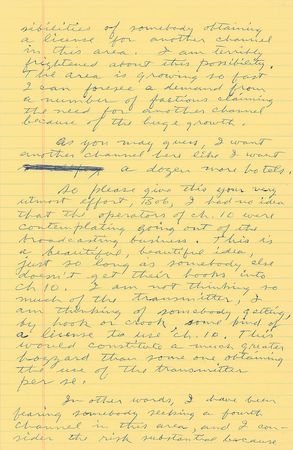 sibilities of somebody obtaining
a license for another channel
in this area. I am terribly
frightened about this possibility.
The area is growing so fast
I can foresee a demand from
a number of factions claiming
the need for another channel
because of the huge growth.
As you may guess, I want
another channel here like I want
a dozen more hotels.
So please give this your very
utmost effort, Bob, I had no idea
that the operators of ch. 10 were
contemplating going out of the
broadcasting business. This is
a beautiful, beautiful idea,
just so long as somebody else
doesn't get their hooks into
ch. 10. I am not thinking so
much of the transmitter, I
am thinking of somebody getting,
by hook or crook, some kind of
a license to use ch. 10. This
would constitute a much greater
hazzard than some one obtaining
the use of the transmitter
per se.
In other words, I have been
fearing somebody seeking a fourth
channel in this area, and I con-
sider the risk substantial because